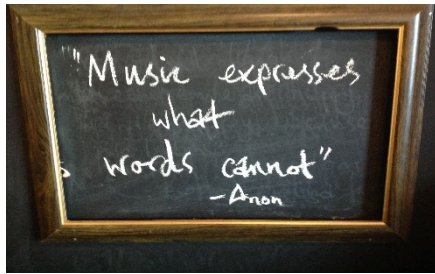 "Music expresses
what
words cannot"
-Anon